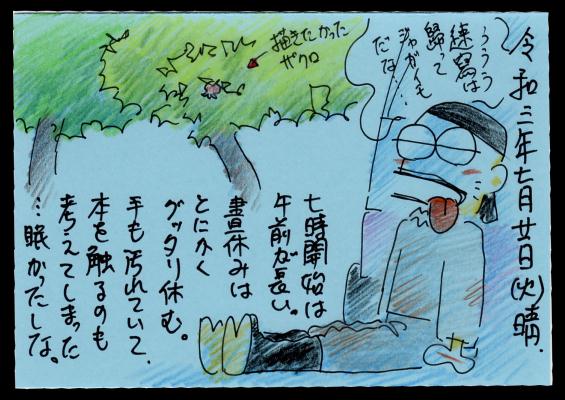 令和三年七月廿日(火)晴.
うううう
速寫は
歸って
シャがんも
だな…
描きたかった
ザクロ
七時開始は
午前が長い。
晝休みは
とにかく
グッタリ休む。
手も汚れていて、
本を触るのも
考えてしまった
…眠かったしな。